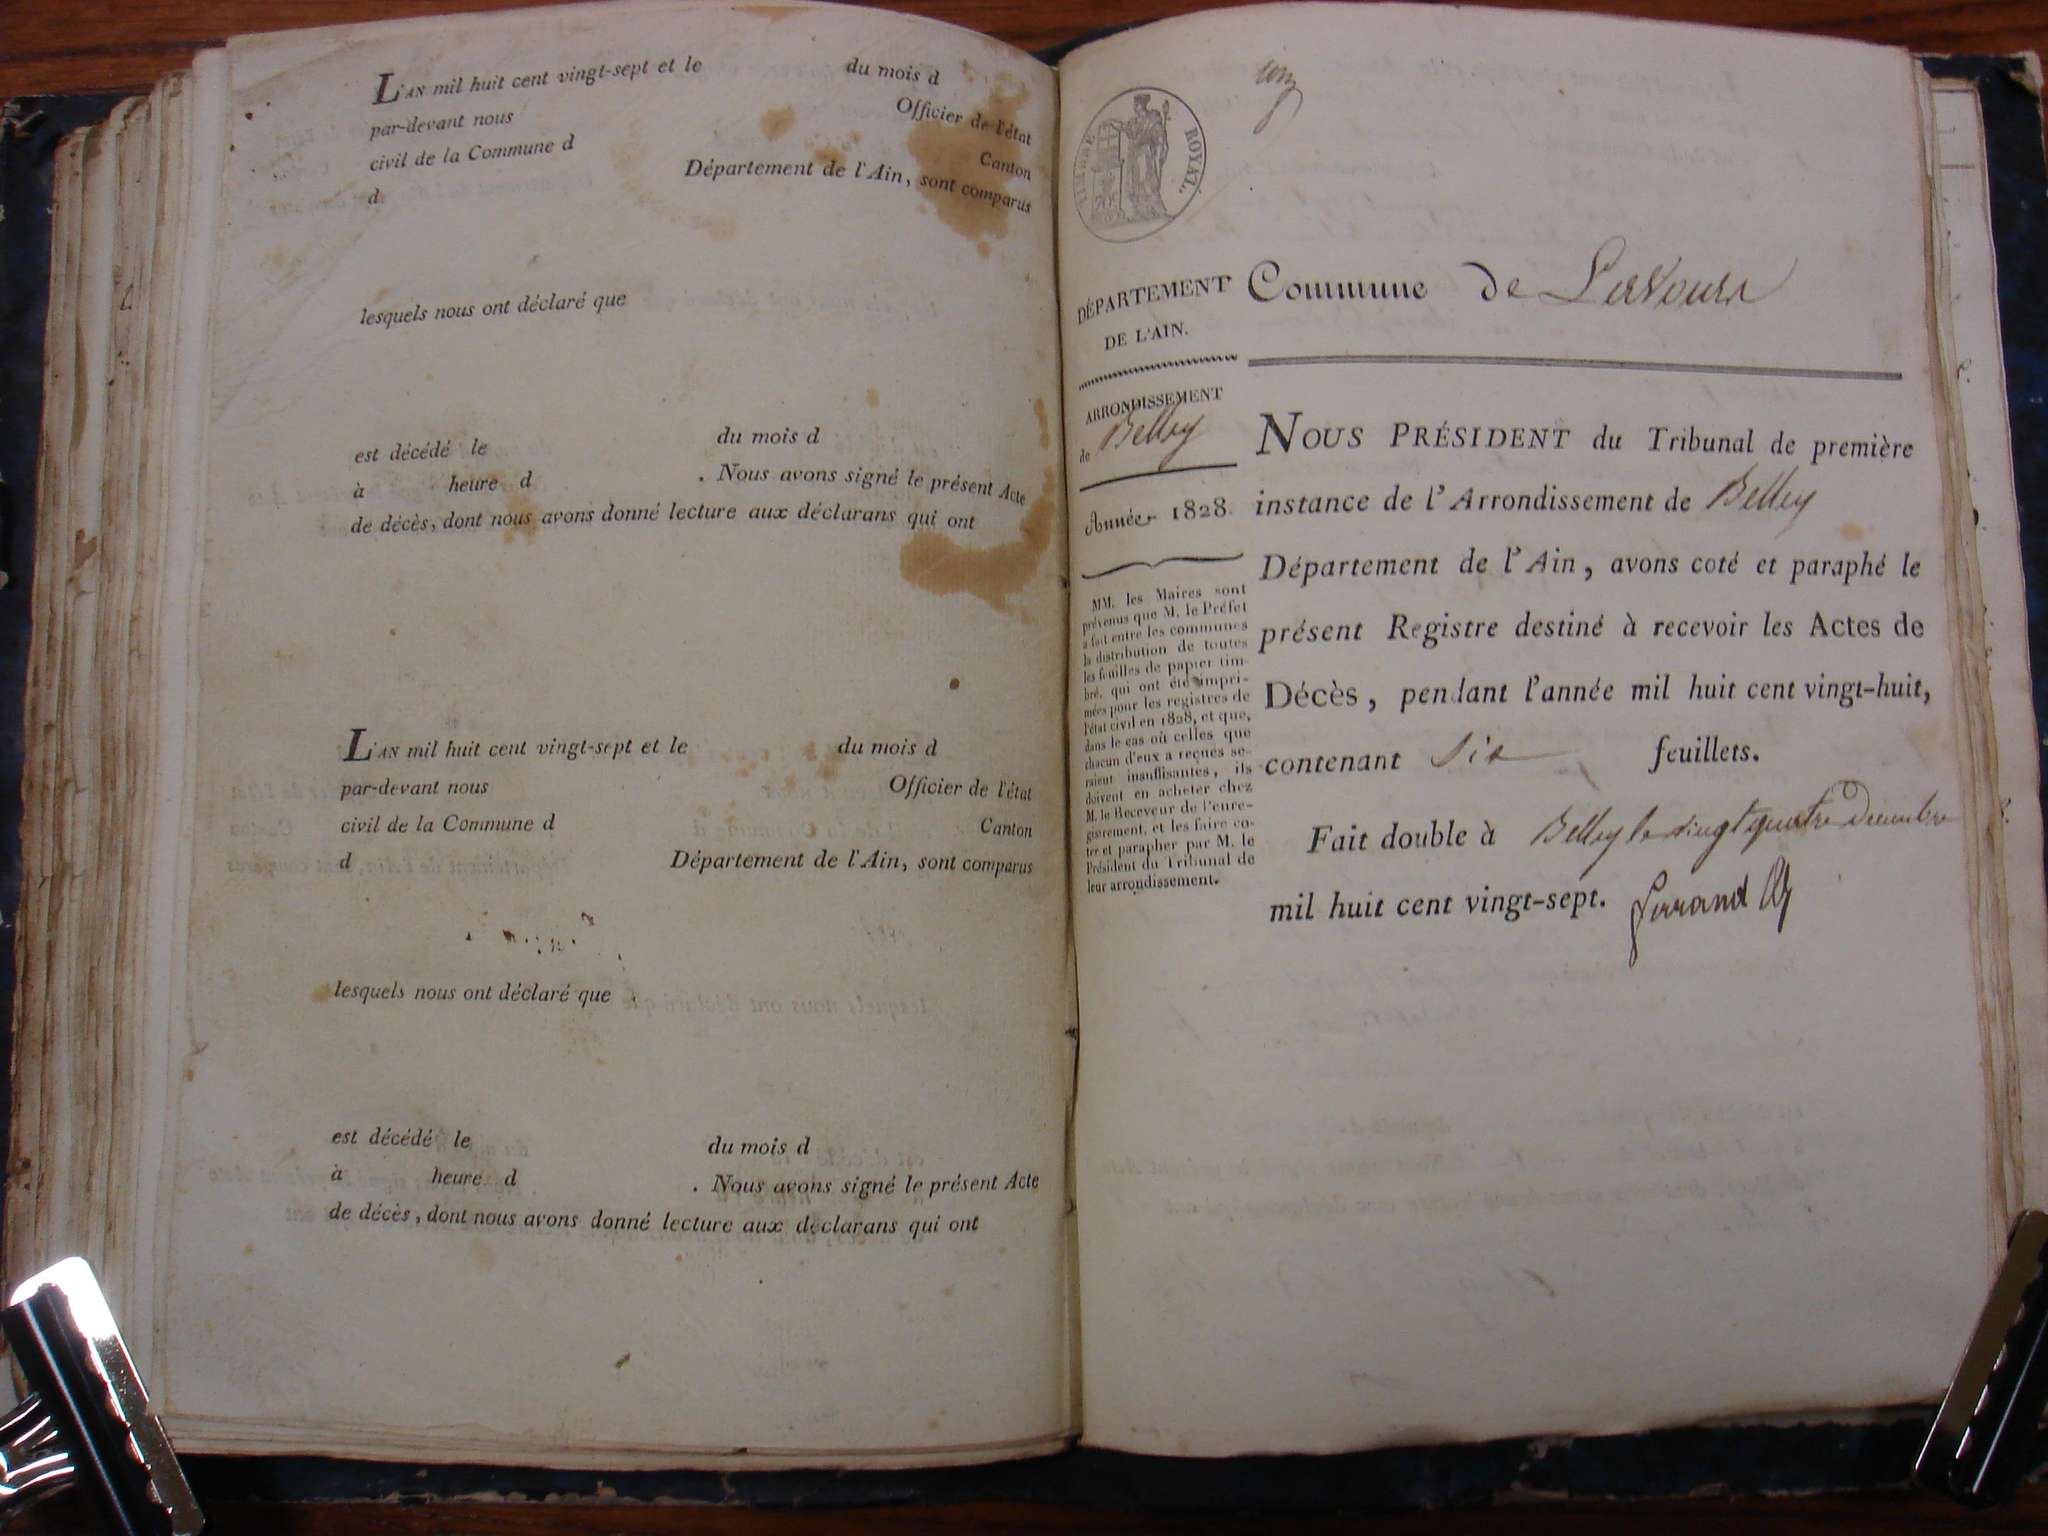 L'AN mil huit cent vingt-sept et le du mois d
par-devant nous Officier de l'état
civil de la Commune d Canton
d Département de l'Ain, sont comparus
lesquels nous ont déclaré que
est décédé le du mois d
à heure d . Nous avons signé le présent Acte
de décès, dont nous avons donné lecture aux déclarans qui ont
L'AN mil huit cent vingt-sept et le du mois d
par-devant nous Officier de l'état
civil de la Commune d Canton
d Département de l'Ain, sont comparus
lesquels nous ont déclaré que
est décédé le du mois d
à heure d . Nous avons signé le présent Acte
de décès, dont nous avons donné lecture aux déclarans qui ont
TIMBRE ROYAL.
DÉPARTEMENT
DE L'AIN.
ARRONDISSEMENT
de Belley
Année 1828
MM. les Maires sont
prévenus que M. le Préfet
a fait entre les communes
la distribution de toutes
les feuilles de papier tim-
bré, qui ont été impri-
mées pour les registres de
l'état civil en 1828, et que,
dans le cas où celles que
chacun d'eux a reçues se-
raient insuffisantes, ils
doivent en acheter chez
M. le Receveur de l'enre-
gistrement, et les faire co-
ter et parapher par M. le
Président du Tribunal de
leur arrondissement.
Commune de Lavours
NOUS PRÉSIDENT du Tribunal de première
instance de l'Arrondissement de Belley
Département de l'Ain, avons coté et paraphé le
présent Registre destiné à recevoir les Actes de
Décès, pendant l'année mil huit cent vingt-huit,
contenant Six feuillets.
Fait double à Belley le vingt quatre Décembre
mil huit cent vingt-sept. Ferrand